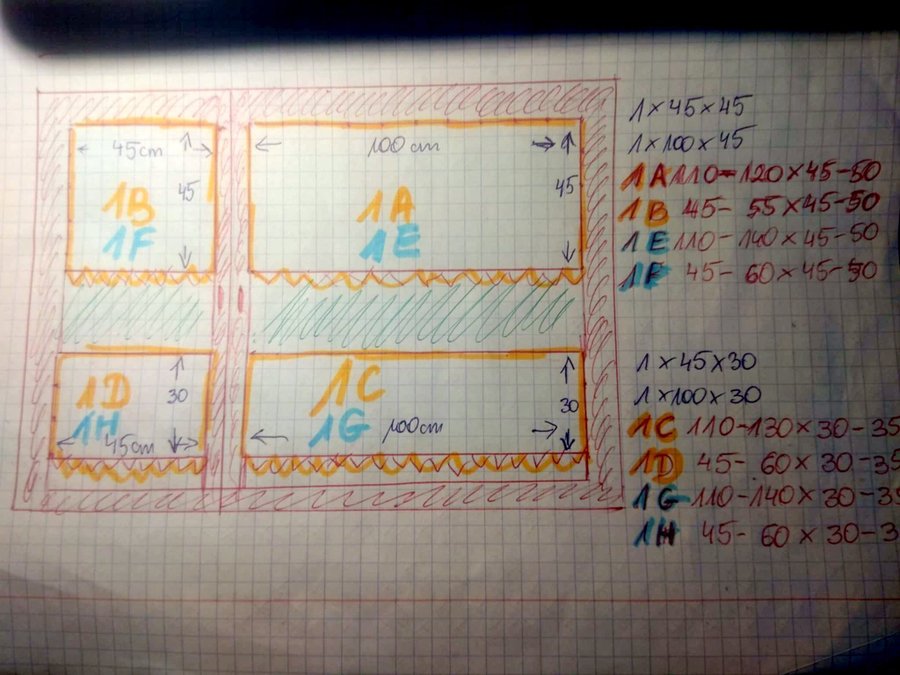 45cm
45
1B
1F
100 cm
45
1A
1E
1D
1H
30
45cm
1C
1G
30
100cm
1 × 45 × 45
1 × 100 × 45
1A 110-120 × 45-50
1B 45- 55 × 45-50
1E 110-140 × 45-50
1F 45- 60 × 45-50
1 × 45 × 30
1 × 100 × 30
1C 110-130 × 30-35
1D 45- 60 × 30-35
1G 110-140 × 30-35
1H 45- 60 × 30-3